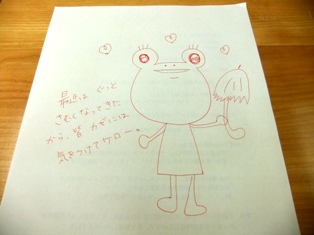 最近は ぐっと
さむくなってきた
から、皆 カゼには
気をつけてケロー。